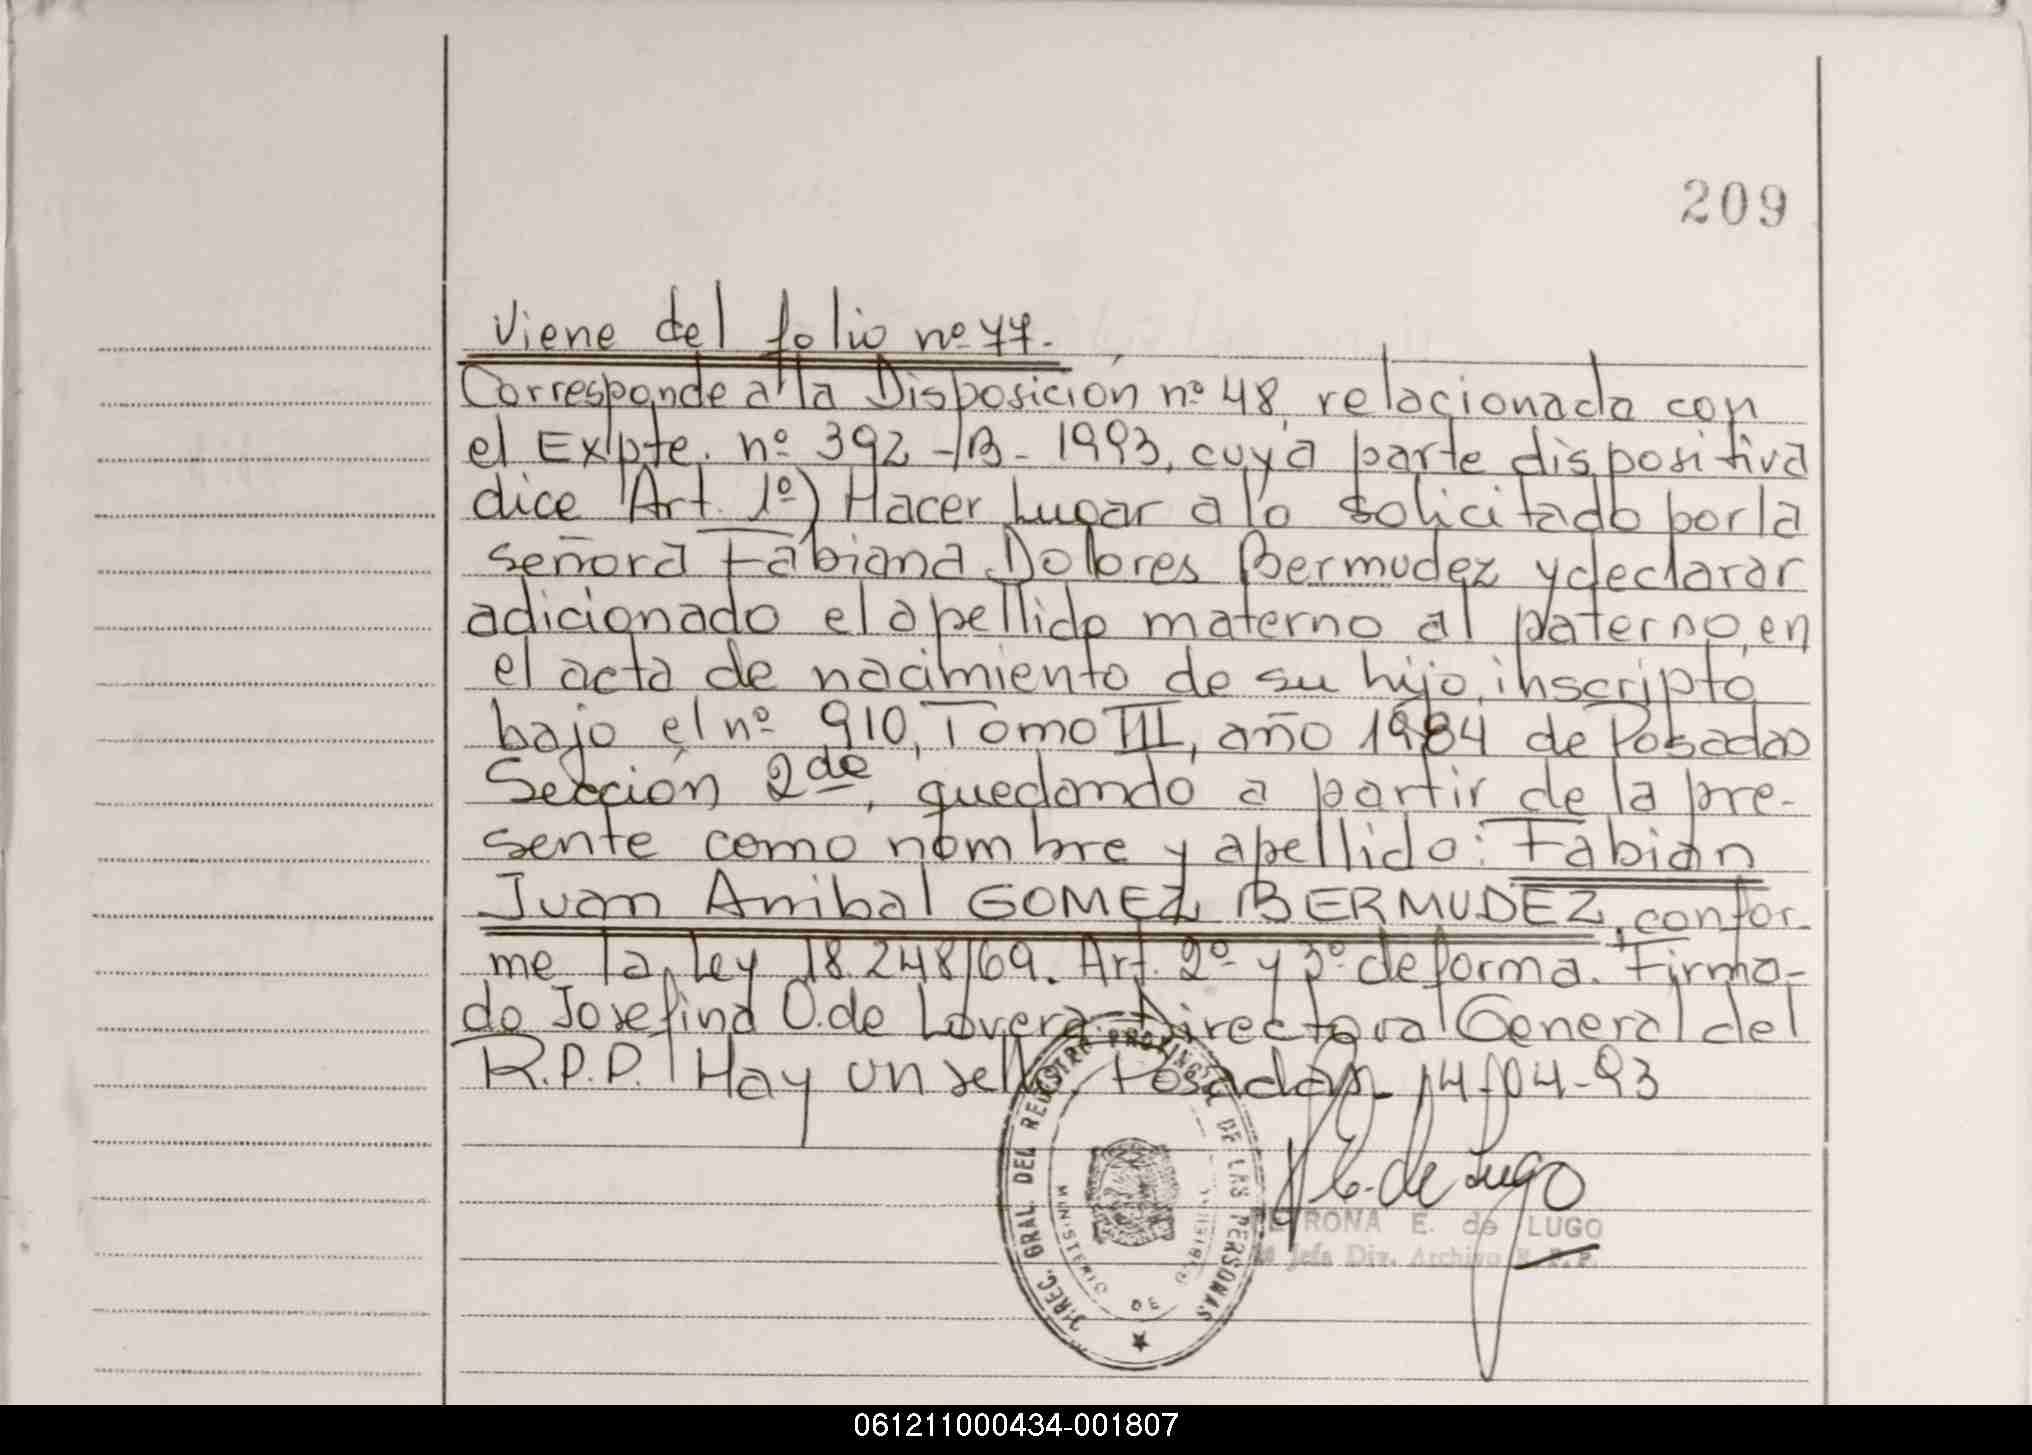 209
Viene del folio nº 77.
Corresponde a la Disposición nº 48 relacionada con
el Expte. nº 392-B-1993, cuya parte dispositiva
dice "Art. 1º) Hacer lugar a lo solicitado por la
señora Fabiana Dolores Bermudez y declarar
adicionado el apellido materno al paterno, en
el acta de nacimiento de su hijo, inscripto
bajo el nº 910, Tomo III, año 1984 de Posadas
Sección 2da, quedando a partir de la pre-
sente como nombre y apellido: Fabián
Juan Anibal GOMEZ BERMUDEZ, confor-
me la Ley 18.248/69. Art. 2º y 3º de forma. Firma-
do Josefina O. de Lovera Directora General del
R.P.P. Hay un sello. Posadas 14-04-93
DIREC. GRAL. DEL REGISTRO PROVINCIAL DE LAS PERSONAS
MINISTERIO DE
E. de Lugo
PETRONA E. de LUGO
Jefa Div. Archivo R.P.P.
061211000434-001807